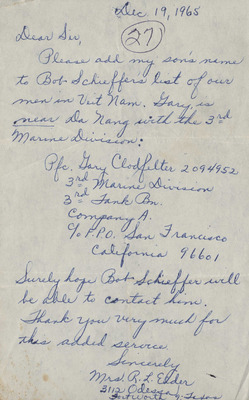 Dec 19, 1965
(27)
Dear Sir,
Please add my son's name
to Bob Schieffer's list of our
men in Viet Nam. Gary, is
near Da Nang with the 3rd
Marine Division:
Pfc. Gary Clodfelter 2094952
3rd Marine Division
3rd Tank Bn.
Company A.
c/o F.P.O. San Francisco
California 96601
Surely hope Bob Schieffer will
be able to contact him.
Thank you very much for
this added service
Sincerely
Mrs. R. L. Elder
3112 Odessa
Ft Worth, Texas